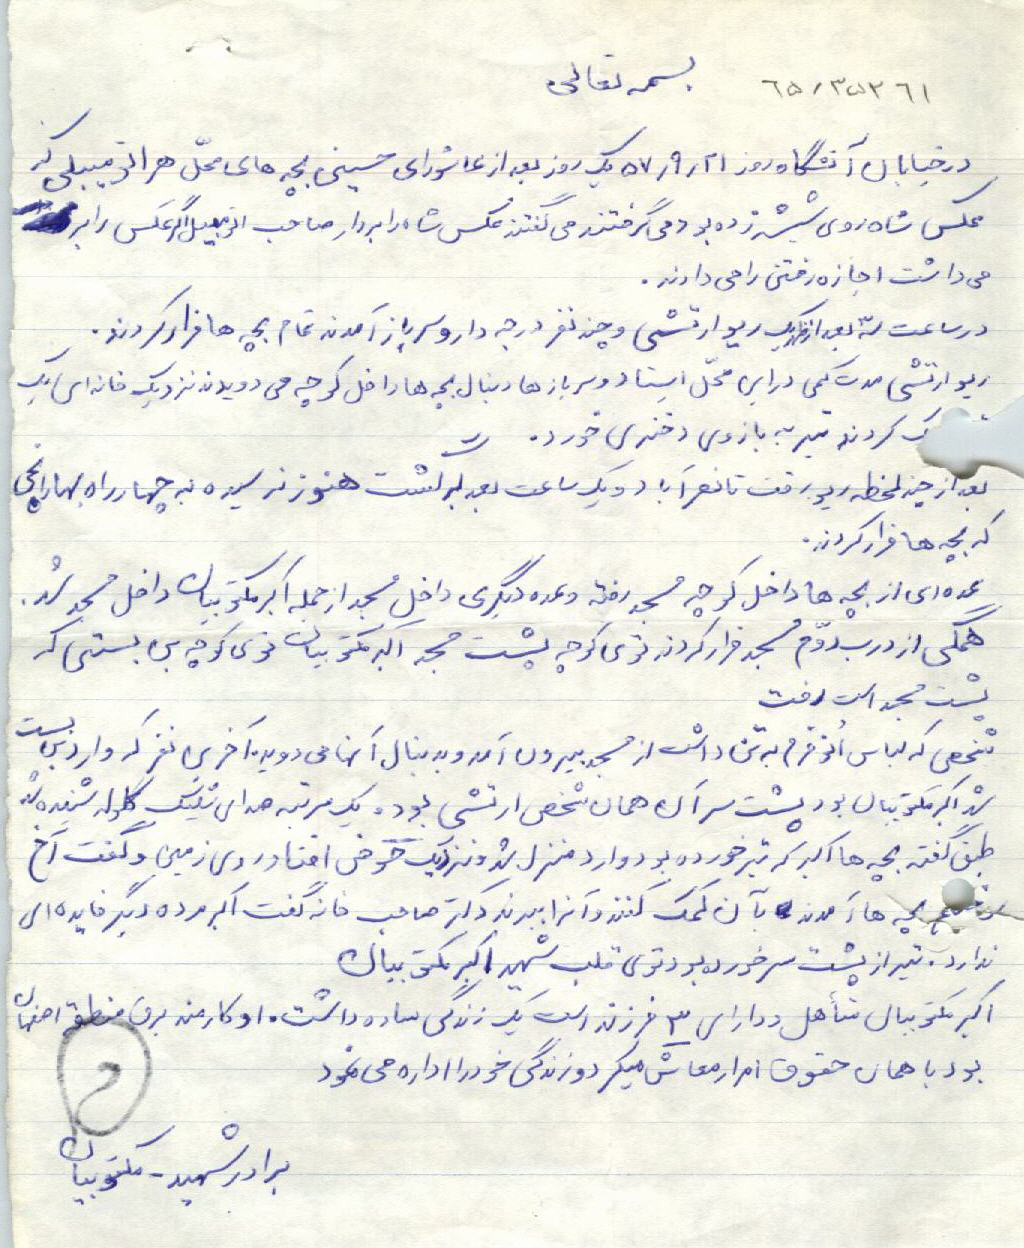 بسمه تعالی
۶۵/۳۵۲۶۱
در خیابان آتشگاه روز ۲۱ر۹ر۵۷ یک روز بعد از عاشورای حسینی بچه های محّل هر اتومبیلی که
عکس شاه روی شیشه زده بود می گرفتند می گفتند عکس شاه را بردار صاحب اتومبیل اگر عکس را بر
می داشت اجازه رفتن را می دادند.
در ساعت بعد از ظهر یک ریو ارتشی و چند نفر درجه دار و سرباز آمدند تمام بچه ها فرار کردند.
ریو ارتشی مدت کمی در این محّل ایستاد و سربازها دنبال بچه ها داخل کوچه می دویدند نزدیک خانه ای یک
کردند تیر به بازوی دختری خورد.
بعد از چند لحظه ریو رفت تا نصرآباد و یک ساعت بعد برگشت هنوز نرسیده به چهارراه بهارانچی
که بچه ها فرار کردند.
عده ای از بچه ها داخل کوچه مسجد رفته و عده دیگری داخل مسجد از جمله اکبر مکتوبیان داخل مسجد شد.
همگی از درب دوّم مسجد فرار کردند توی کوچه پشت مسجد اکبر مکتوبیان توی کوچه بن بستی که
پشت مسجد است رفت
شخصی که لباس اُنوفرم به تن داشت از مسجد بیرون آمد و به دنبال آنها می دوید. آخرین نفر که وارد بن بست
شد اکبر مکتوبیان بود پشت سر آن همان شخص ارتشی بود. یک مرتبه صدای شلیک گلوله شنیده شد
طبق گفته بچه ها اکبر که تیر خورده بود وارد منزل شد و نزدیک حوض افتاد روی زمین و گفت آخ
بچه ها آمدند بآن کمک کنند و آنرا ببرند دکتر صاحب خانه گفت اکبر مرده دیگر فایده ای
ندارد. تیر از پشت سر خورده بود توی قلب شهید اکبر مکتوبیان
اکبر مکتوبیان متأهل و دارای ۳ فرزند است یک زندگی ساده داشت. او کارمند برق منطقه اصفهان
بود با همان حقوق امرار معاش میکرد و زندگی خود را اداره می نمود
برادر شهید - مکتوبیان